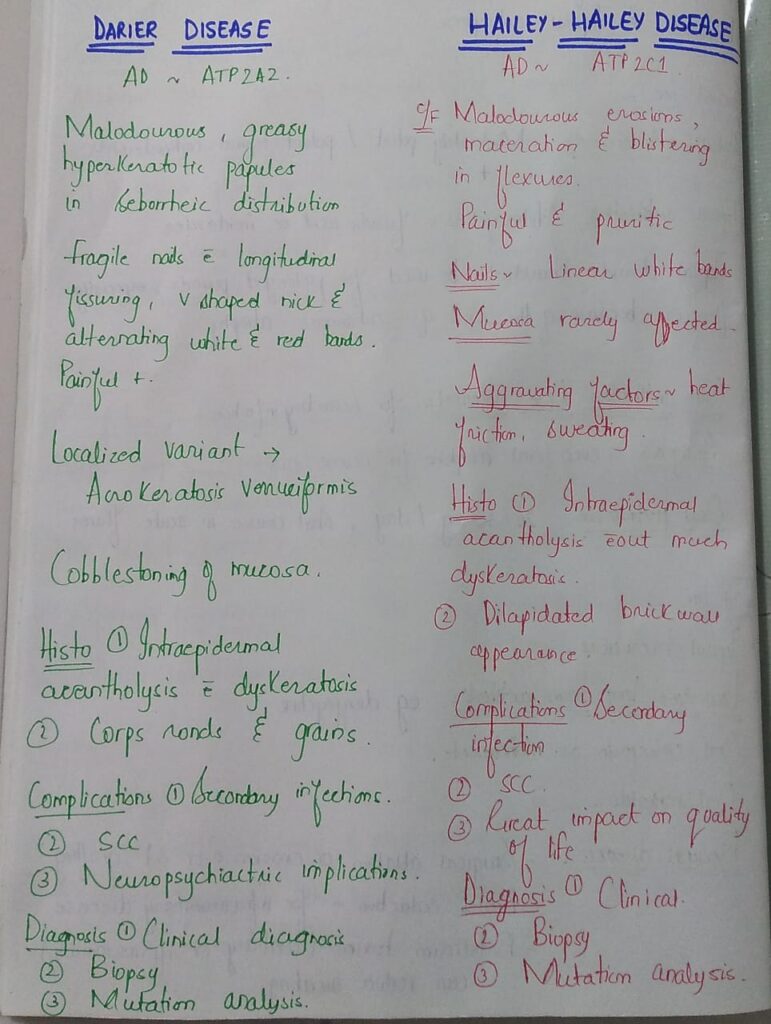 DARIER DISEASE
AD ~ ATP2A2.
Malodourous, greasy
hyperkeratotic papules
in seborrheic distribution
fragile nails c̄ longitudinal
fissuring, V shaped nick &
alternating white & red bands.
Painful +.
Localized variant →
Acrokeratosis Verruciformis
Cobblestoning of mucosa.
Histo ① Intraepidermal
acantholysis c̄ dyskeratosis
② Corps ronds & grains.
Complications ① Secondary infections.
② SCC
③ Neuropsychiactric implications.
Diagnosis ① Clinical diagnosis
② Biopsy
③ Mutation analysis.
HAILEY-HAILEY DISEASE
AD ~ ATP2C1
C/F Malodourous erosions,
maceration & blistering
in flexures.
Painful & pruritic
Nails ~ Linear white bands
Mucosa rarely affected.
Aggravating factors ~ heat
friction, sweating.
Histo ① Intraepidermal
acantholysis c̄out much
dyskeratosis.
② Dilapidated brickwall
appearance.
Complications ① Secondary
infection
② SCC.
③ Great impact on quality
of life
Diagnosis ① Clinical.
② Biopsy
③ Mutation analysis.